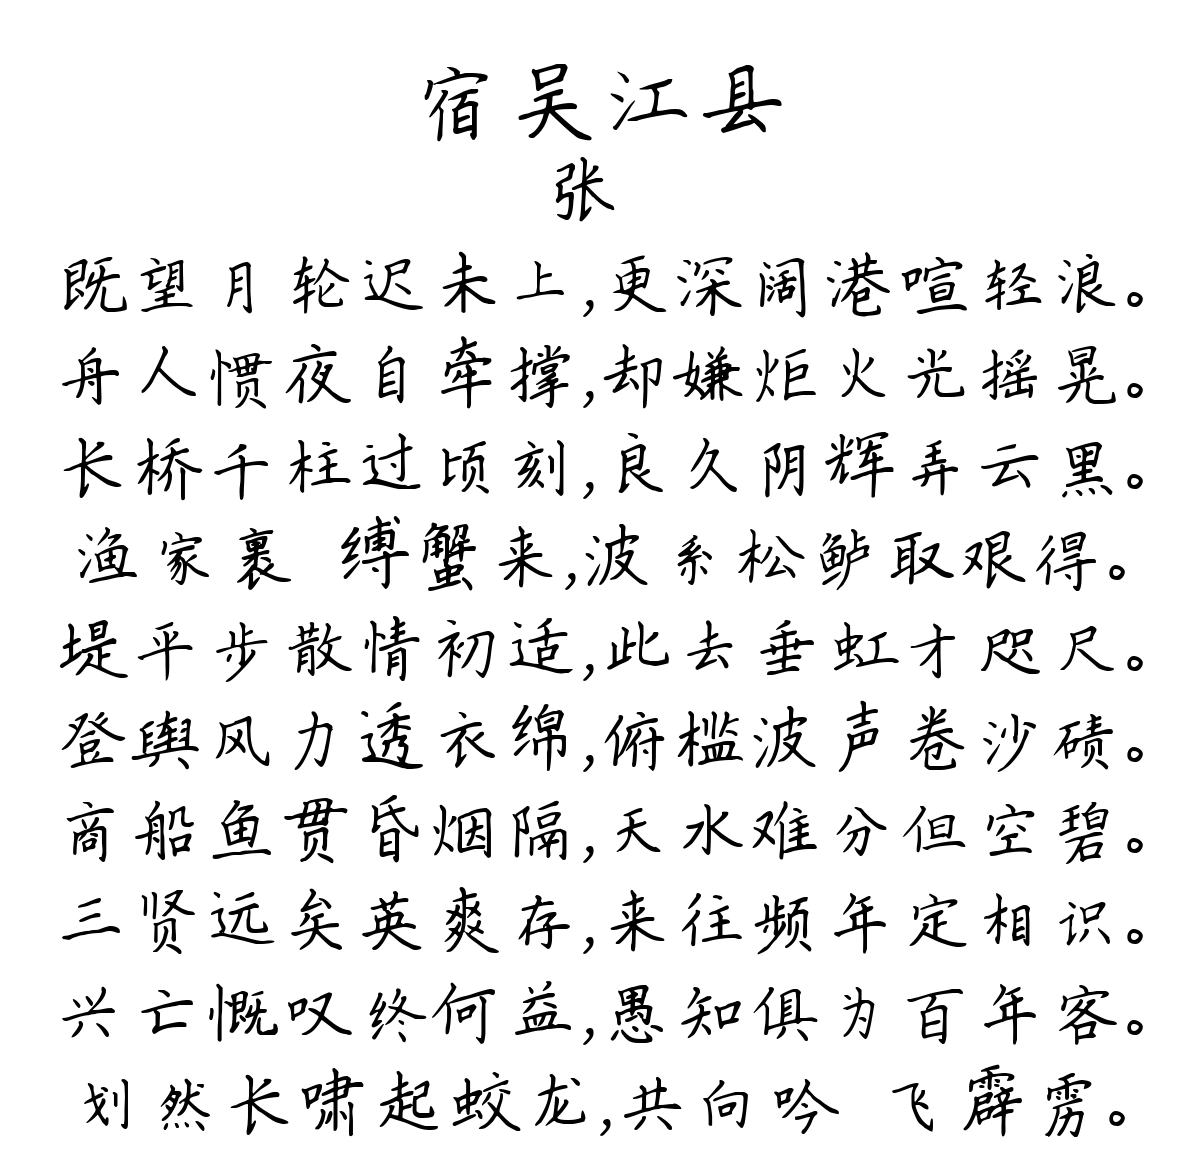 宿吴江县
张
既望月轮迟未上,更深阔港喧轻浪。
舟人惯夜自牵撑,却嫌炬火光摇晃。
长桥千柱过顷刻,良久阴辉弄云黑。
渔家裹 缚蟹来,波系松鲈取艰得。
堤平步散情初适,此去垂虹才咫尺。
登舆风力透衣绵,俯槛波声卷沙碛。
商船鱼贯昏烟隔,天水难分但空碧。
三贤远矣英爽存,来往频年定相识。
兴亡慨叹终何益,愚知俱为百年客。
划然长啸起蛟龙,共向吟 飞霹雳。